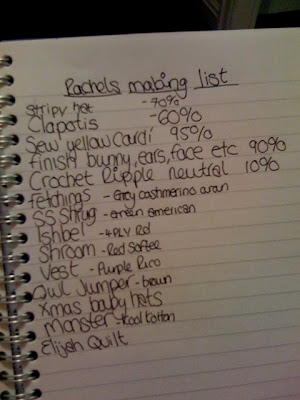 Rachels making list
Stripy hat -90%
Clapotis -60%
Sew yellow cardi 95%
finish bunny, ears, face etc 90%
Crochet Ripple neutral 10%
fetchings - Grey cashmerino aran
SS Shrug - green american
Ishbel - 4PLY Rd
Shroom - Red Softee
Vest - Purple Rico
Owl Jumper - brown
Xmas baby hats
Monster - Kool Cotton
Elijah Quilt